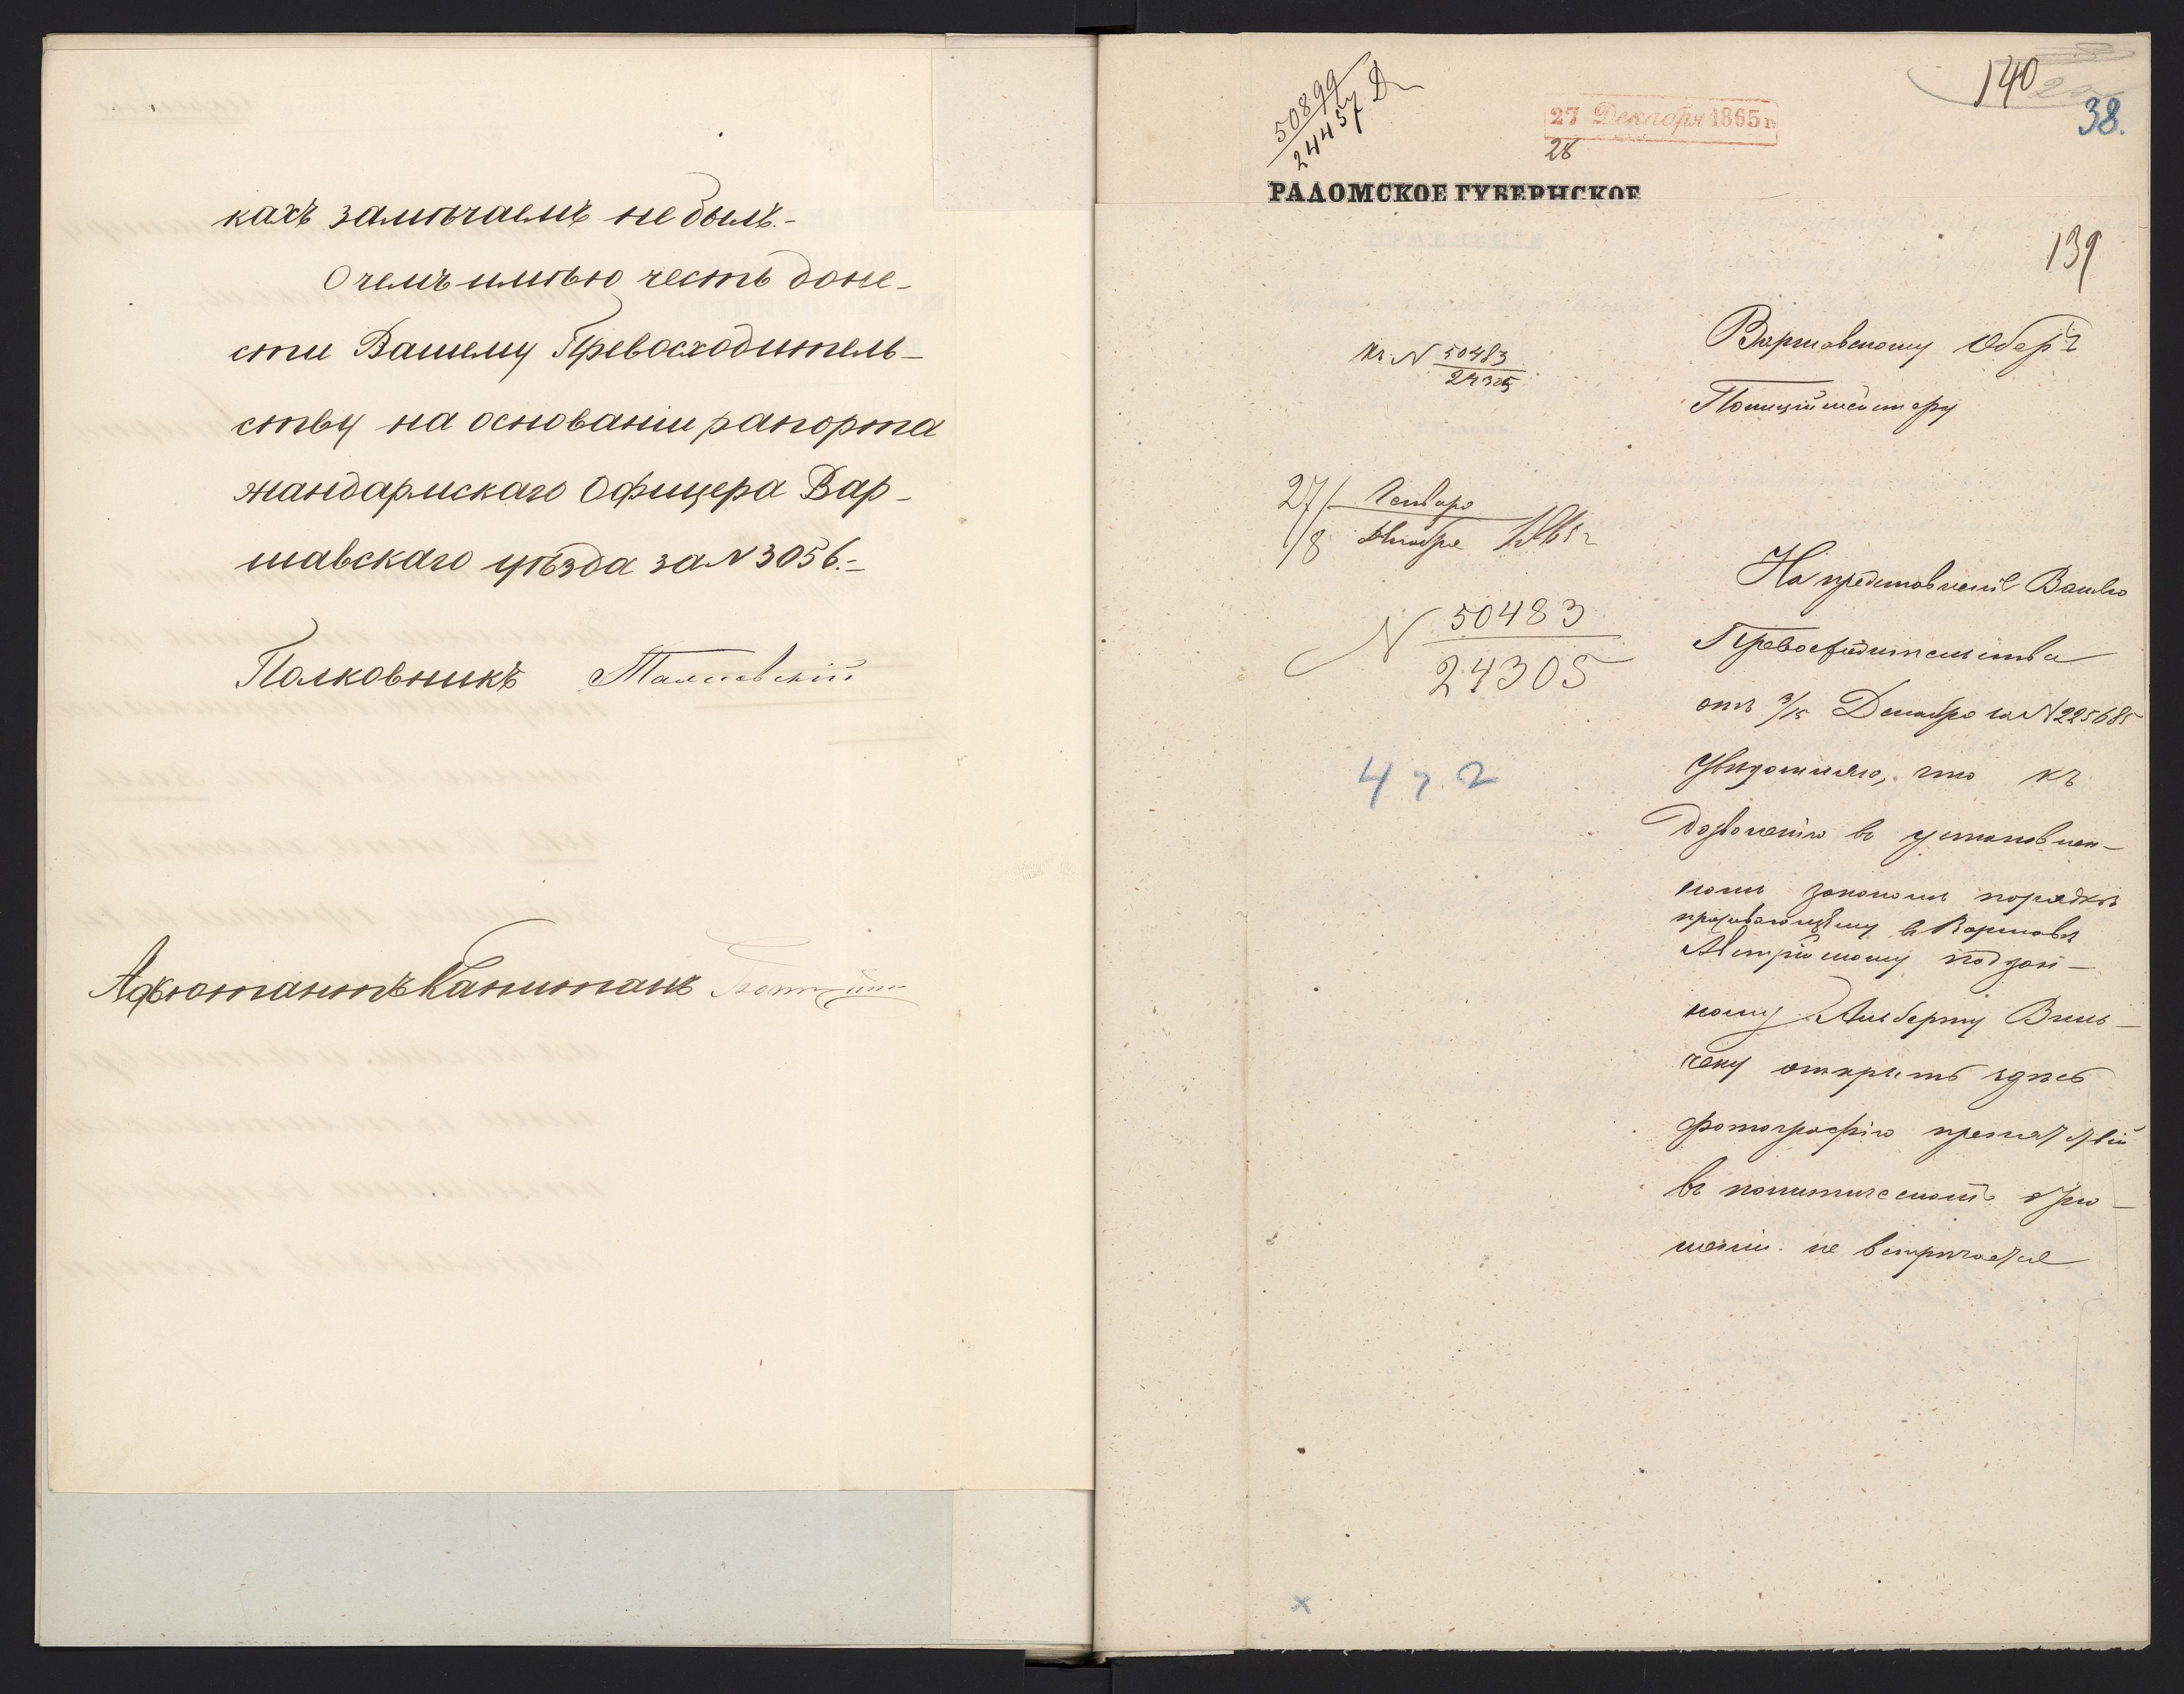 кахъ замѣчаемъ не былъ.-
О чемъ имѣю честь доне-
сти Вашему Превосходитель-
ству на основаніи рапорта
жандармскаго Офицера Вар-
шавскаго уѣзда за N 3056.-
Полковникъ
Адъютантъ Капитанъ
50899
24457
27 Декабря 1865 г.
28
140
38.
РАДОМСКОЕ ГУБЕРНСКОЕ
139
къ N 50483
24305
Варшавскому Оберъ
Полиціймейстеру
27/8 1865 г
N 50483
24305
4 г. 2
На представленіе Вашего
Превосходительства
отъ 3/15 Декабря за N 225685
увѣдомляю, что къ
дозволенію въ установлен-
номъ закономъ порядкѣ
проживающему въ Варшавѣ
Австрійскому поддан-
ному Альберту Виль-
чеку открыть здѣсь
фотографію препятствій
въ политическомъ отно-
шеніи не встрѣчается
х